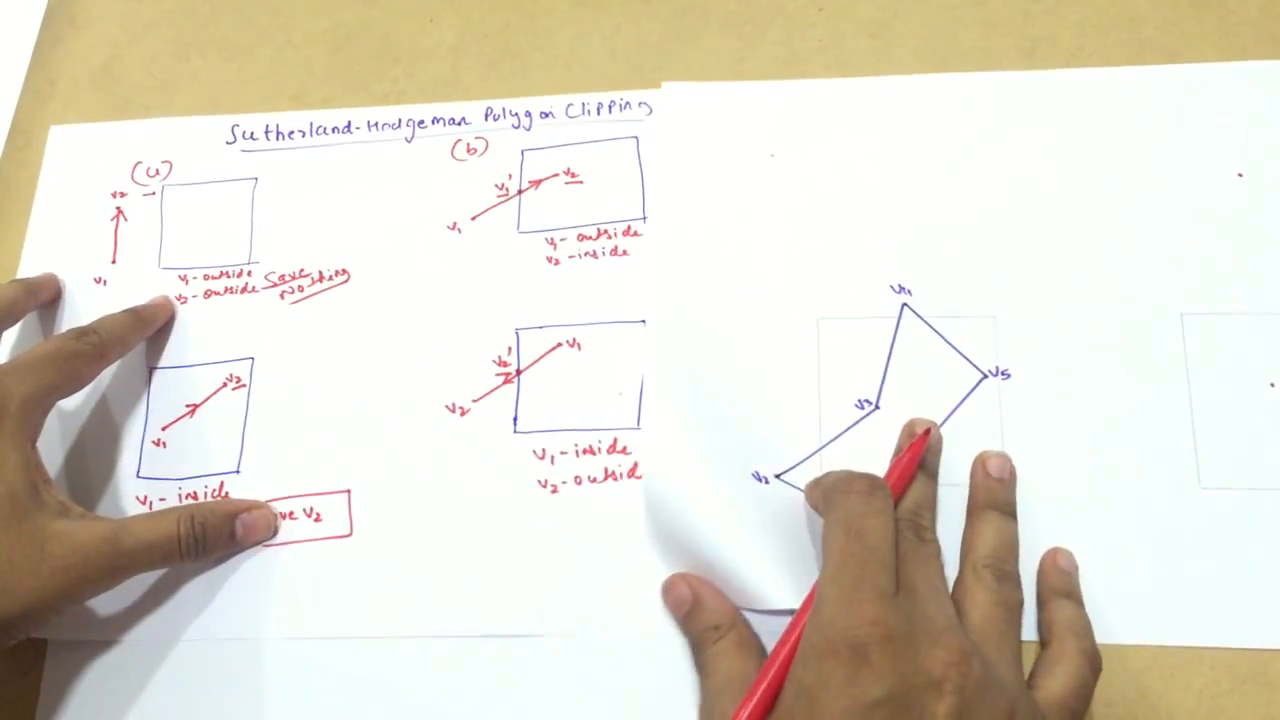 Sutherland-Hodgeman Polygon Clipping
(a)
v2
v1
v1-outside
v2-outside Save
Nothing
(b)
v1'
v2
v1
v1-outside
v2-inside
v2
v1
v1-inside
ve v2
v1
v2'
v2
v1-inside
v2-outsid
v4
v5
v3
v2